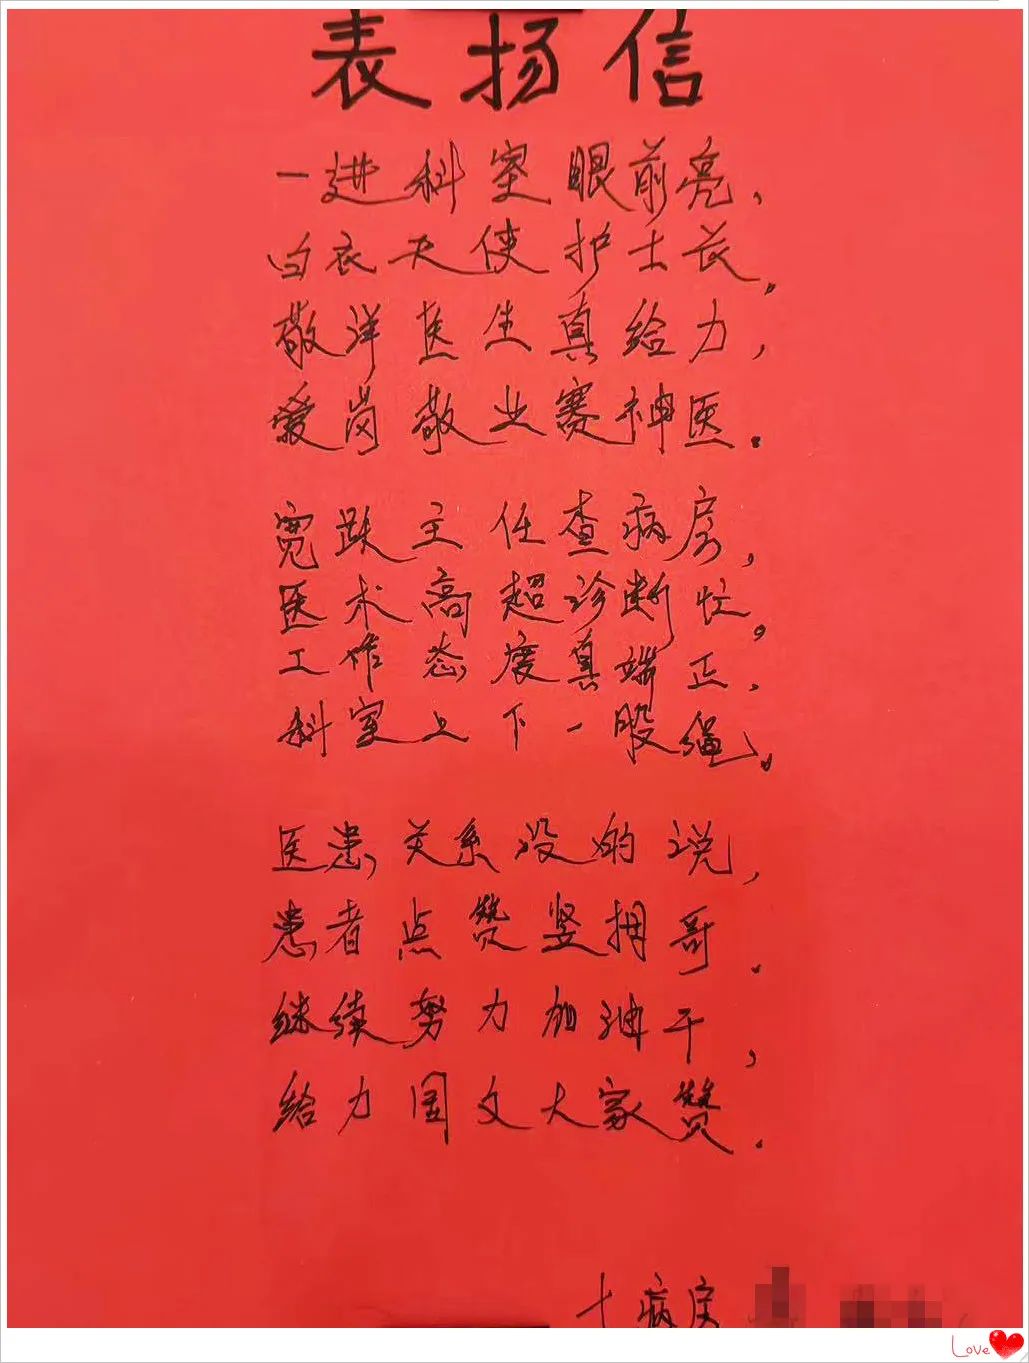 表扬信
一进科室眼前亮，
白衣天使护士长。
敬洋医生真给力，
爱岗敬业赛神医。
宽跃主任查病房，
医术高超诊断忙。
工作态度真端正，
科室上下一股绳。
医患关系没的说，
患者点赞竖拥哥.
继续努力加油干，
给力国文大家赞.
十病房
Love